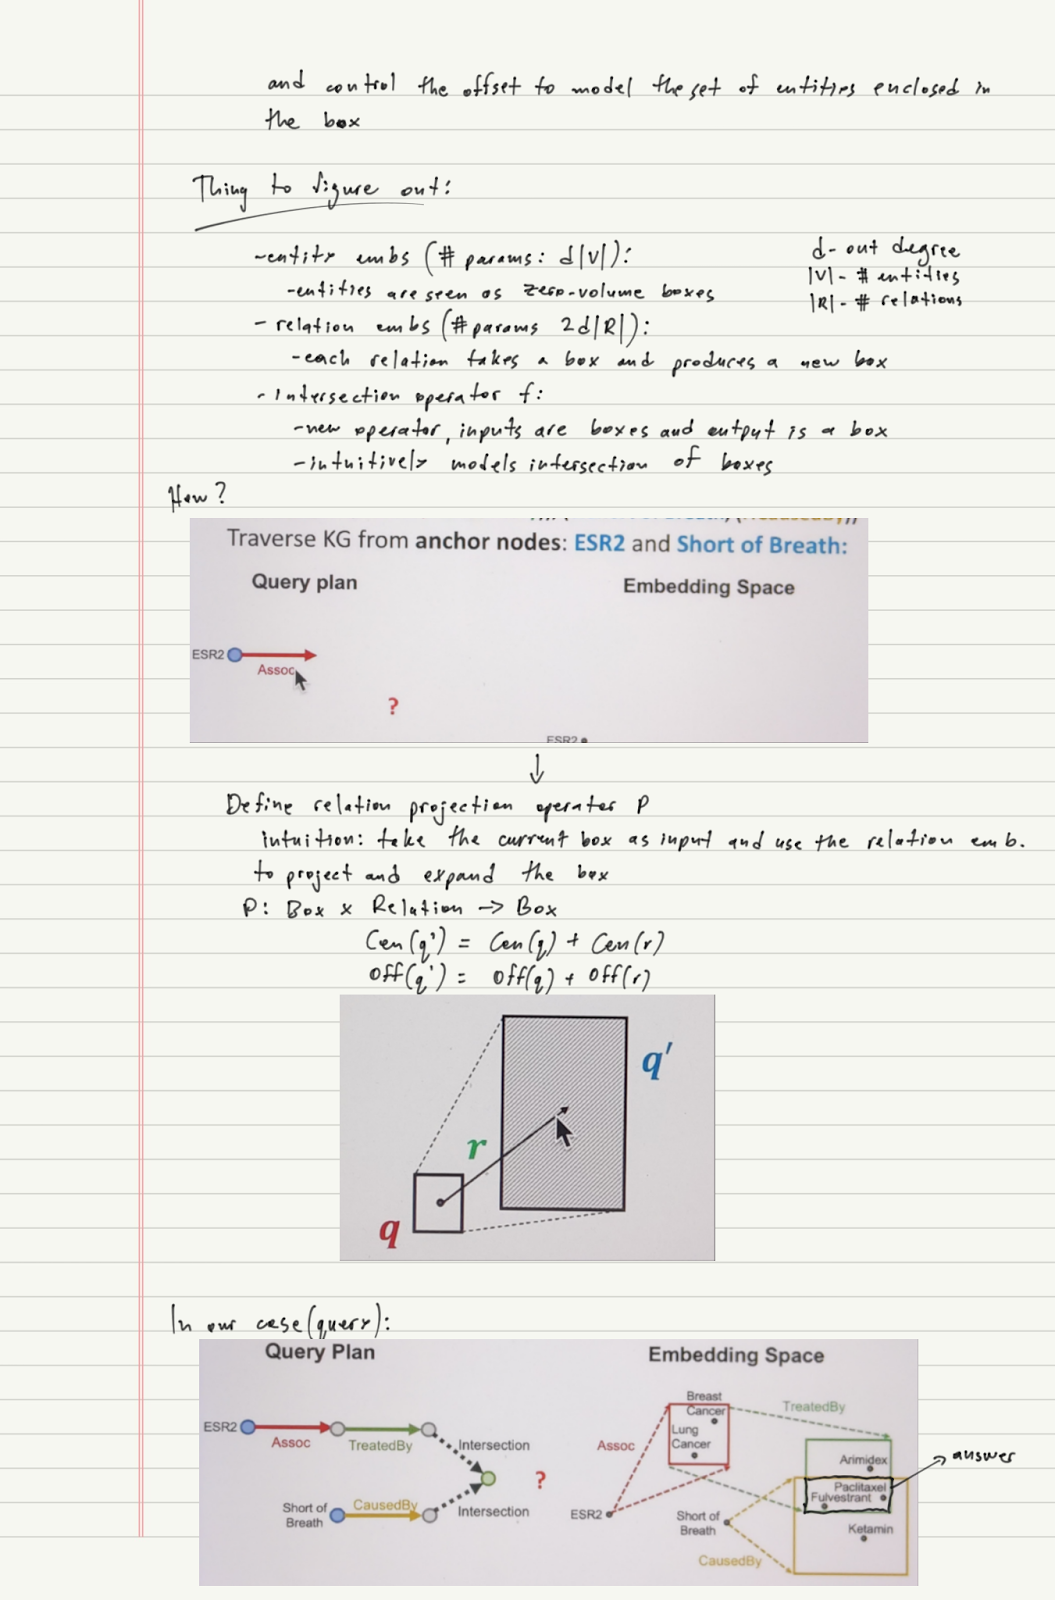 and control the offset to model the set of entities enclosed in
the box
Thing to figure out:
-entity embs (# params: d|V|):
-entities are seen as zero-volume boxes
- relation embs (#params 2d|R|):
-each relation takes a box and produces a new box
- Intersection operator f:
-new operator, inputs are boxes and output is a box
-intuitively models intersection of boxes
d- out degree
|V|- # entities
|R|- # relations
How?
Traverse KG from anchor nodes: ESR2 and Short of Breath:
Query plan
Embedding Space
ESR2
Assoc
?
ESR2
↓
Define relation projection operator P
intuition: take the current box as input and use the relation emb.
to project and expand the box
P: Box x Relation -> Box
Cen(q') = Cen(q) + Cen(r)
Off(q') = Off(q) + Off(r)
q'
r
q
In our case(query):
Query Plan
ESR2
Assoc
TreatedBy
Intersection
?
Short of
Breath
CausedBy
Intersection
Embedding Space
Breast
Cancer
TreatedBy
Lung
Cancer
Assoc
Arimidex
answer
Paclitaxel
Fulvestrant
ESR2
Short of
Breath
Ketamin
CausedBy